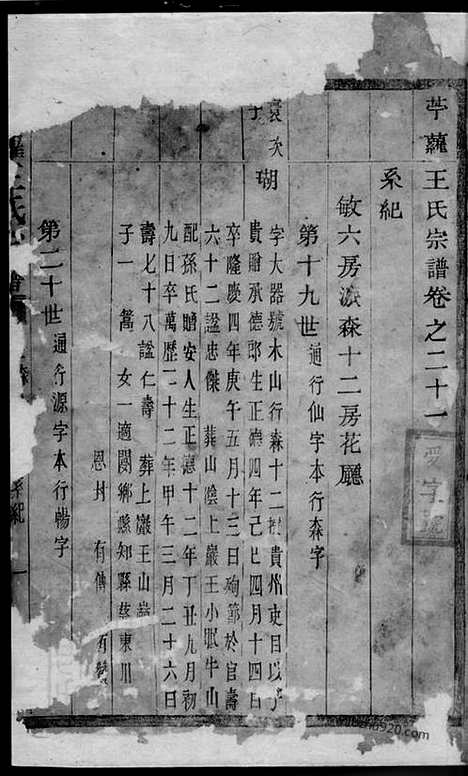 苧蘿王氏宗譜卷之二十一
系紀
敏六房派森十二房花廳
第十九世通行仙字本行森字
袞次
子
瑚
字大器號木山行森十二授貴州吏目以子
貴贈承德郎生正德四年己巳四月十四日
卒隆慶四年庚午五月十三日殉節於官壽
六十二諡忠傑 葬山陰上巖王小眠牛山
配孫氏贈安人生正德十二年丁丑九月初
九日卒萬歷二十二年甲午三月二十六日
壽七十八諡仁壽 葬上巖王山
子一 嵩 女一適閿鄉縣知縣蔡東川
恩封 有傳 有
第二十世通行源字本行暢字
王氏
系紀
一
字號